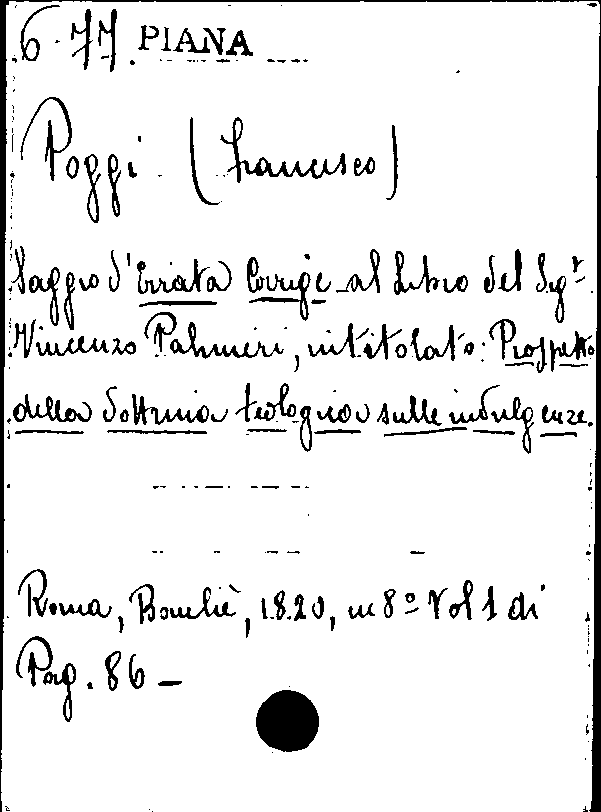 6.77. PIANA
Poggi (Francesco)
Saggio d'Errata Corrige al Libro del Sigr
Vincenzo Palmieri, intitolato: Prospetto
della dottrina teologica sulle indulgenze.
Roma, Bourliè, 1820, in 8º Vol 1 di
Pag. 86 —